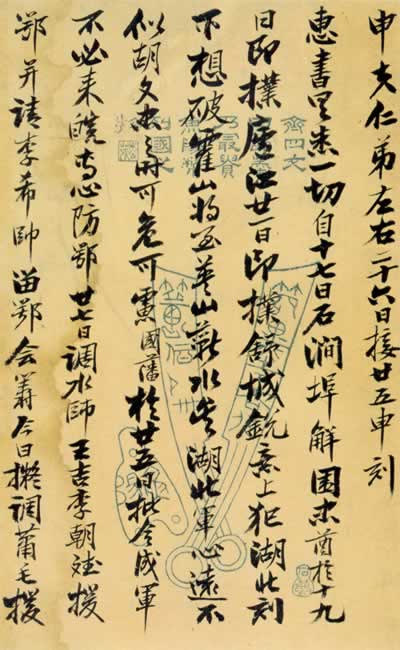 申夫仁弟左右二十六日接廿五申刻
惠書具悉一切自十七日石澗埠解圍忠酋於十九
日即撲廬江廿一日即撲舒城銳意上犯湖北刻
下想破霍山將至英山蘄水矣湖北軍心遠不
似胡文忠時可危可慮國藩於廿五日批令成軍
不必來皖專心防鄂廿七日調水師王吉李朝斌援
鄂并請李希帥留鄂會籌今日擬調蕭毛援